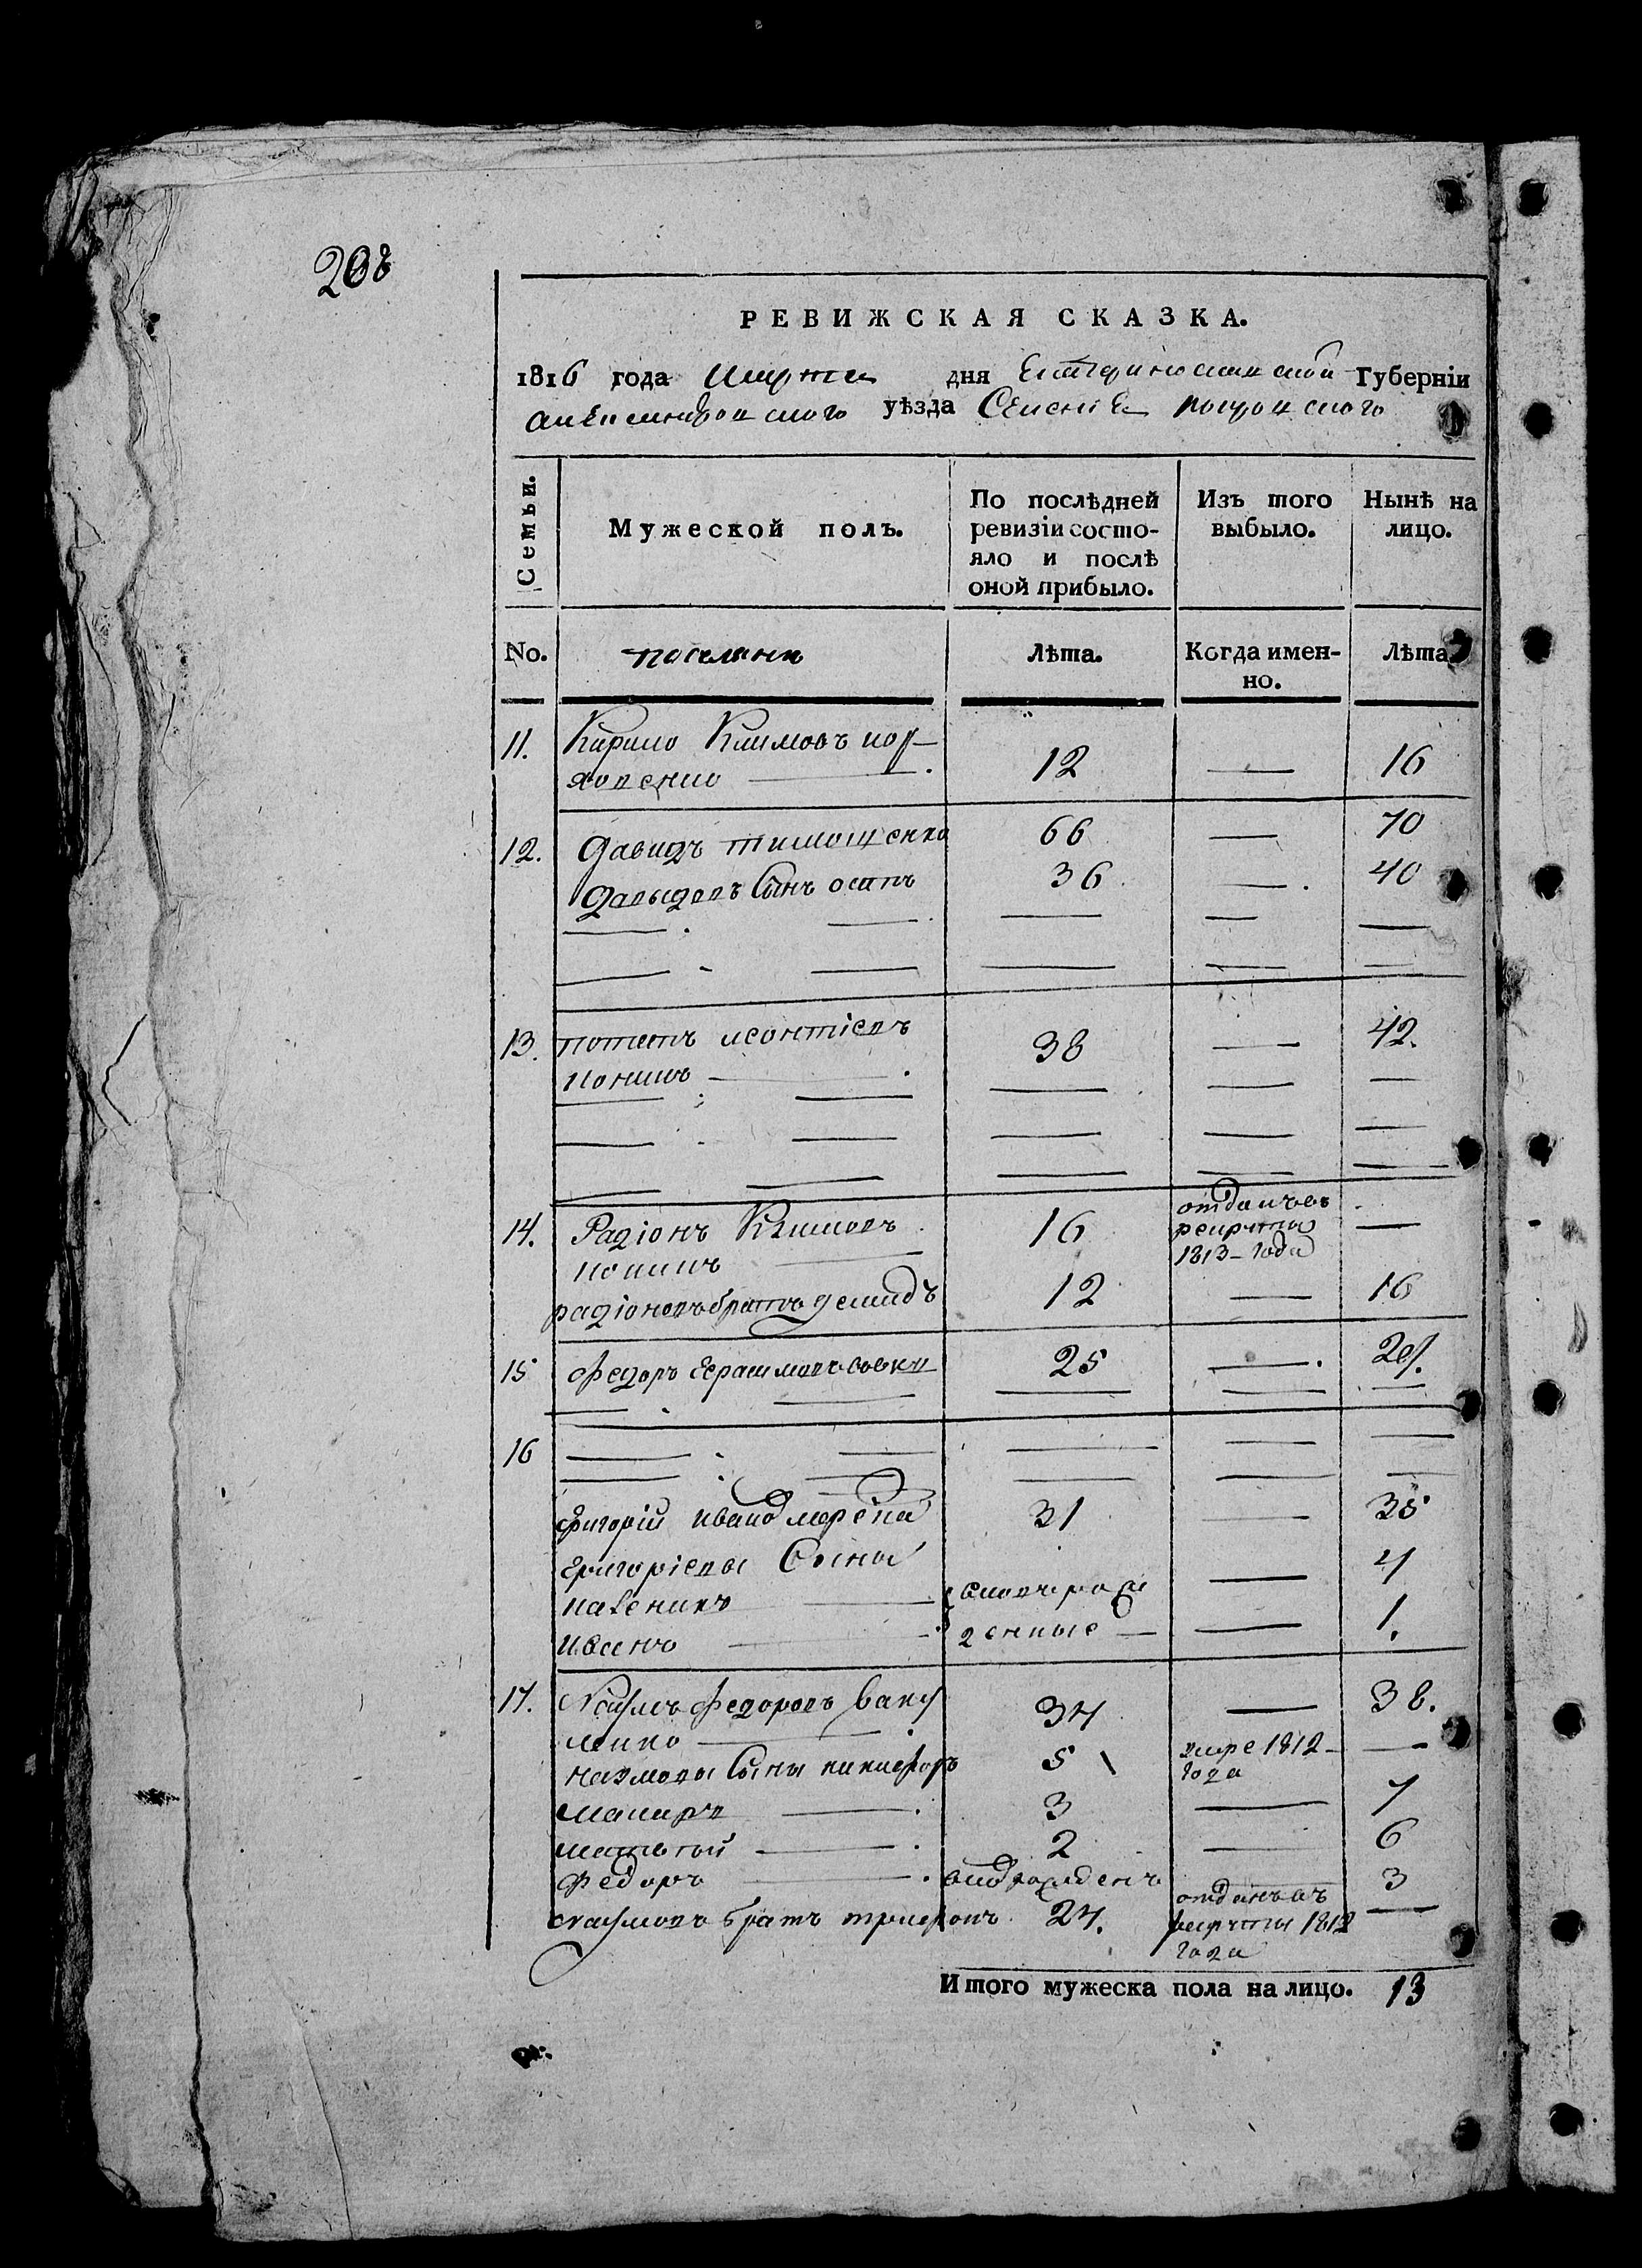 208
РЕВИЖСКАЯ СКАЗКА.
1816 года Марта дня Екатеринославской Губерніи
Александровского уѣзда Селеніе Покровского
Семьи.
Мужеской полъ.
По послѣдней ревизіи состояло и послѣ оной прибыло.
Изъ того выбыло.
Нынѣ на лицо.
No. поселяне Лѣта. Когда именно. Лѣта.
11. Кирило Климовъ
12 — 16
12. Давидъ тимощенко 66 — 70
Давыдовъ Сынъ осипъ 36 — 40
13. потапъ леонтіевъ 38 — 42.
14. Радіонъ Климовъ 16 отданъ въ рекруты 1813 года —
радіоновъ братъ демидъ 12 — 16
15 Федоръ Герасимовъ 25 — 29.
16
Григорій Иванов 31 — 35
Григоріевы Сыны
— 4
Иванъ — 1.
17. Наумъ Федоровъ Ваку
ленко 34 — 38.
наумовы Сыны никифоръ 5 умре 1812 года —
макаръ 3 — 7
матвей 2 — 6
Федоръ 3
наумовъ братъ трифонъ 24. отданъ въ рекруты 1812 года —
Итого мужеска пола на лицо. 13